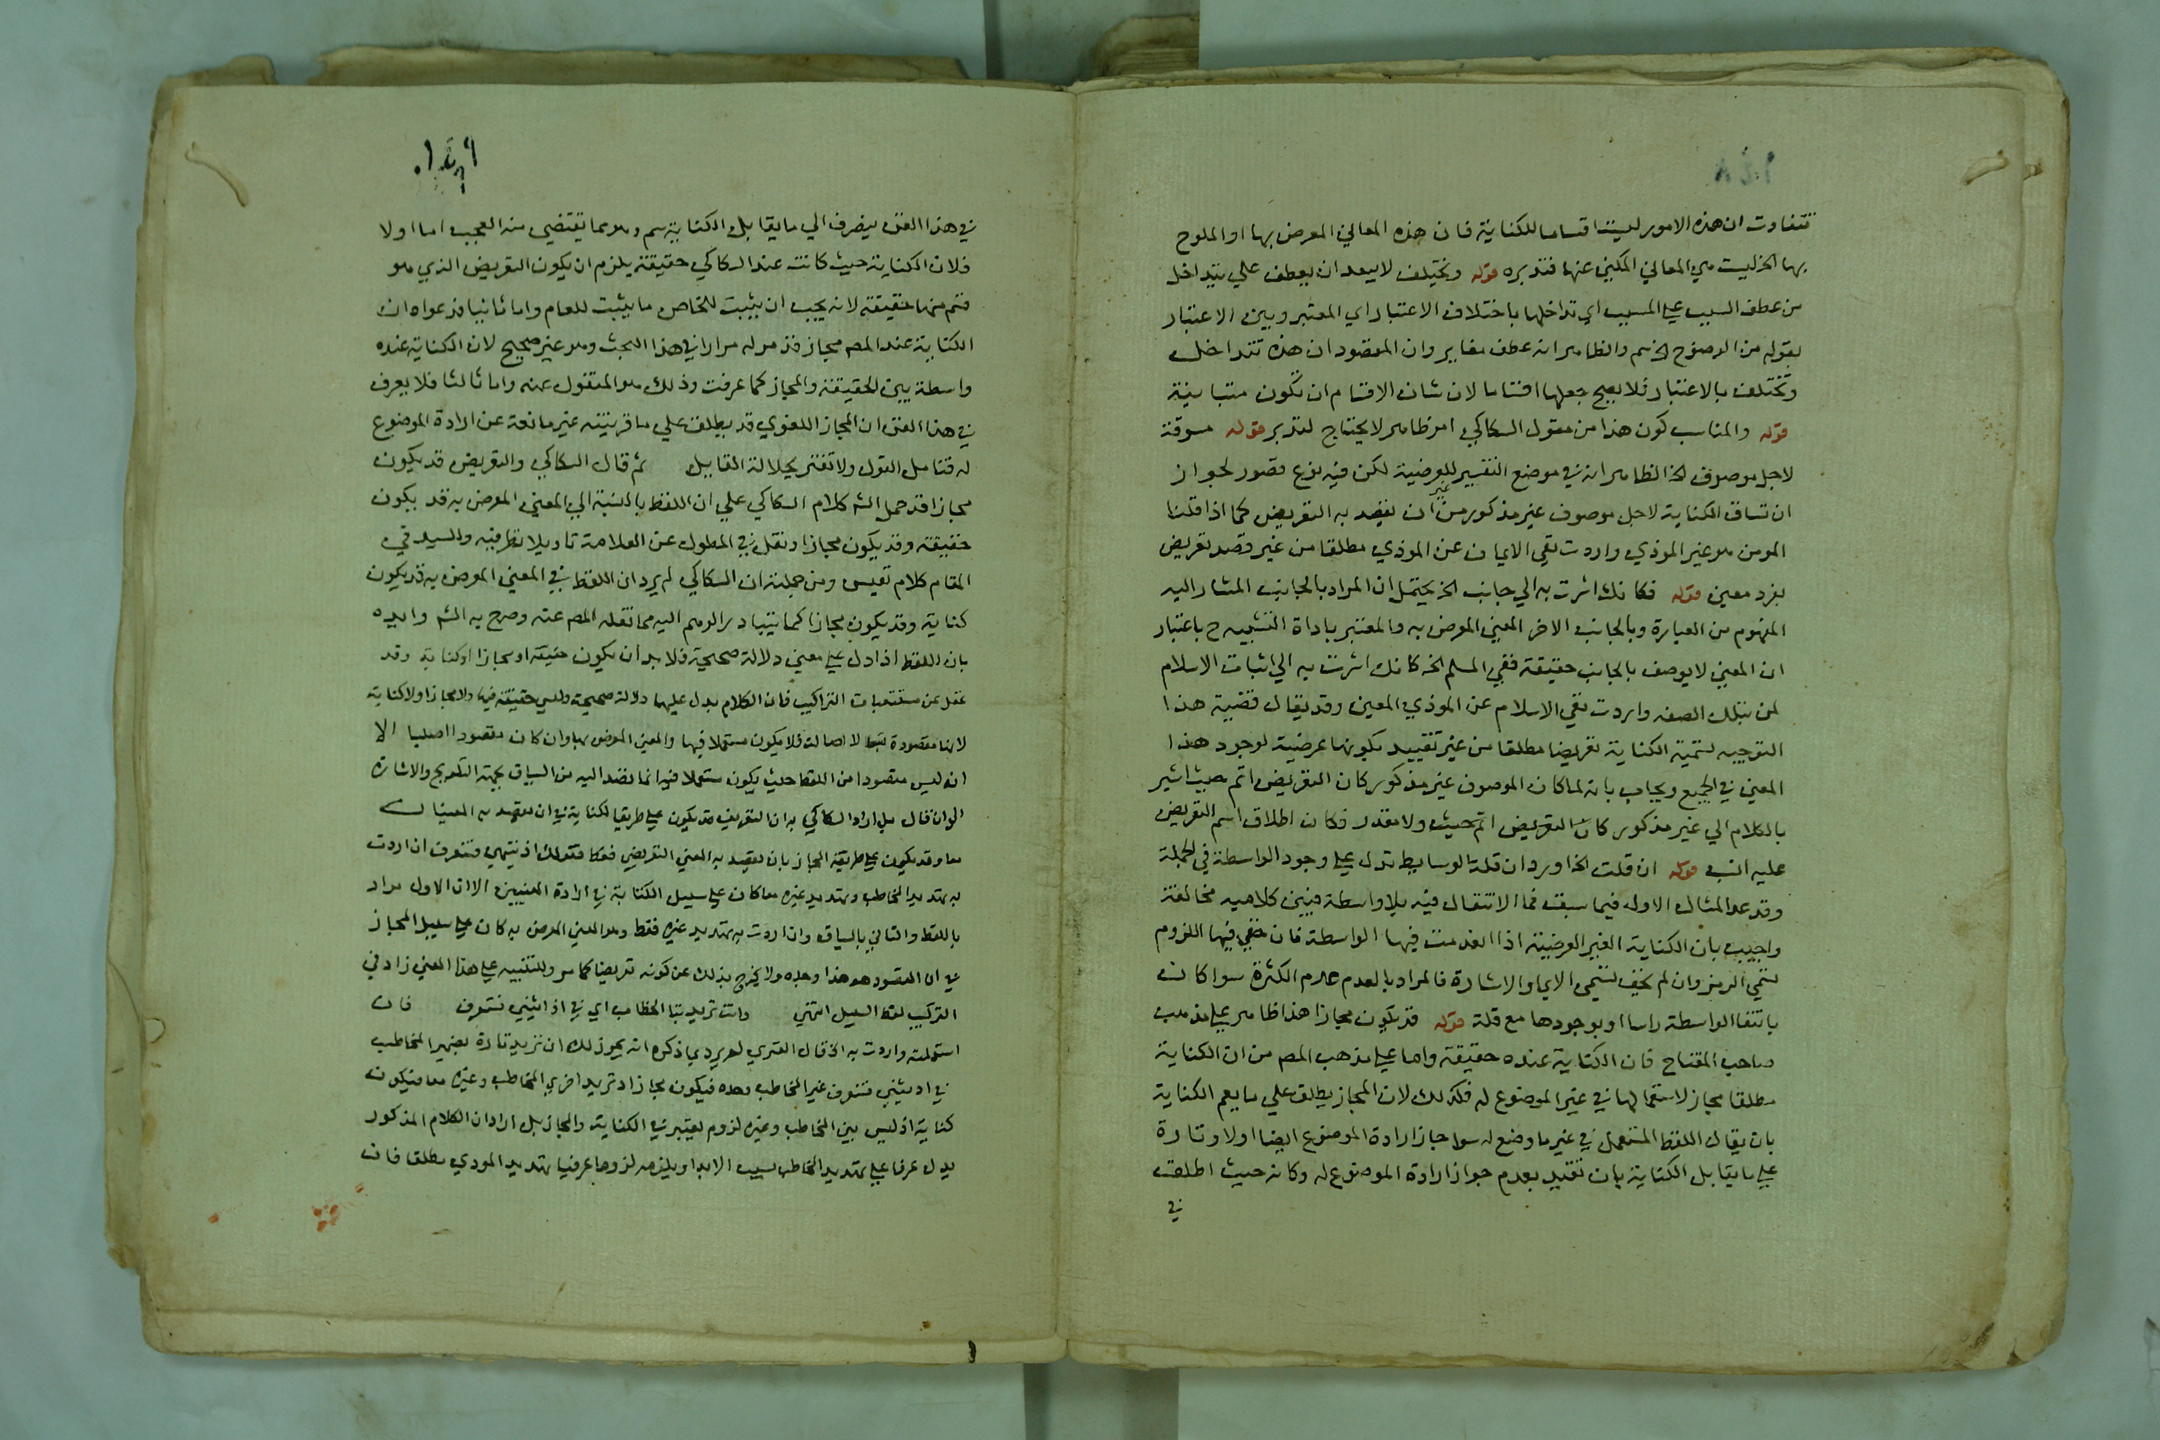 تتفاوت ان هذه الامور ليست اقساما للكناية فان هذه المعاني المعرض بها او الملوح
بها الخ ليست هي المعاني المكني عنها فتدبره قوله وتختلف لا يبعد ان يعطف علي تتداخل
من عطف السبب على المسبب اي تداخلها باختلاف الاعتبار اي المعتبر وبين الاعتبار
بقوله من الوضوح الخ سم والظاهر انه عطف مغاير وان المقصود ان هذه تتداخل
وتختلف بالاعتبار فلا يصح جعلها اقساما لان شان الاقسام ان تكون متباينة
قوله والمناسب كون هذا من مقول السكاكي امر ظاهر لا يحتاج لتدبر قوله مسوقة
لاجل موصوف الخ الظاهر انه في موضع التفسير للعرضية لكن فيه نوع قصور لجواز
ان تساق الكناية لاجل موصوف غير مذكور من غير ان يقصد به التعريض كما اذا قلنا
المومن هو غير الموذي واردت نفي الايمان عن الموذي مطلقا من غير قصد تعريض
بفرد معين قوله فكانك اشرت به الي جانب الخ يحتمل ان المراد بالجانب المشار اليه
المفهوم من العبارة وبالجانب الاخر المعني المعرض به والمعتبر باداة التشبيه ح باعتبار
ان المعني لا يوصف بالجانب حقيقة ففي المسلم الخ كانك اشرت به الي اثبات الاسلام
لمن بتلك الصفه واردت نفي الاسلام عن الموذي المعين وقد يقال قضية هذا
التوجيه تسمية الكناية تعريضا مطلقا من غير تقييد بكونها عرضية لوجود هذا
المعني في الجميع ويجاب بانه لما كان الموصوف غير مذكور كان التعريض اتم حيث اشير
بالكلام الي غير مذكور كان التعريض اتم حيث ولا مقدر فكان اطلاق اسم التعريض
عليه انسب قوله ان قلت الخ اورد ان قلة الوسايط تدل على وجود الواسطة في الجملة
وقد عد المثال الاوله فيما سبق مما الانتقال فيه بلا واسطة فبين كلاميه مخالفة
واجيب بان الكناية الغير العرضية اذا انعدمت فيها الواسطة فان خفي فيها اللزوم
تسمي الرمز وان لم يخف تسمي الايما والاشارة فالمراد بالعدم عدم الكثرة سوا كان
بانتفا الواسطة راسا او بوجودها مع قلة قوله قد يكون مجازا هذا ظاهر على مذهب
صاحب المفتاح فان الكناية عنده حقيقة واما على مذهب المصر من ان الكناية
مطلقا مجاز لاستعمالها في غير الموضوع له فكذلك لان المجاز يطلق علي ما يعم الكناية
بان يقال اللفظ المستعمل في غير ما وضع له سوا جاز ارادة الموضوع ايضا اولا وتارة
على ما يقابل الكناية بان تقيد بعدم جواز ارادة الموضوع له وكانه حيث اطلقت
في
في هذا الفن ينصرف الي ما يقابل الكناية سم وهو مما يقتضي منه العجب اما اولا
فلان الكناية حيث كانت عند السكاكي حقيقة يلزم ان يكون التعريض الذي هو
قسم منها حقيقة لانه يجب ان يثبت للخاص ما يثبت للعام واما ثانيا فدعواه ان
الكناية عند المصر مجاز قد مر له مرارا في هذا البحث وهو غير صحيح لان الكناية عنده
واسطة بين الحقيقة والمجاز كما عرفت وذلك هو المنقول عنه واما ثالثا فلا يعرف
في هذا الفن ان المجاز اللغوي قد يطلق علي ما قرينته غير مانعة عن الارادة الموضوع
له فتامل القول ولا تغتر بجلالة القايل ثم قال السكاكي والتعريض قد يكون
مجازا قد حمل الشم كلام السكاكي علي ان اللفظ بالنسبة الي المعني المعرض به قد يكون
حقيقة وقد يكون مجازا ونقل في المطول عن العلامة تاويلا نظر فيه وللسيد في
المقام كلام نفيس ومن جملته ان السكاكي لم يرد ان اللفظ في المعني المعرض به قد يكون
كناية وقد يكون مجازا كما يتبادر الوهم اليه مما نقله المصر عنه وصرح به الشم وايده
بان اللفظ اذا دل على معني دلالة صحيحة فلا بد ان يكون حقيقة او مجازا او كناية وقد
غفل عن مستتبعات التراكيب فان الكلام يدل عليها دلالة صحيحة وليس حقيقة فيها ولا مجازا ولا كناية
لانها مقصودة تبعا لا اصالة فلا يكون مستعملا فيها والمعني المعرض بها وان كان مقصودا اصليا الا
انه ليس مقصودا من اللفظ حيث يكون مستعملا فيه انما قصد اليه من السياق بجهة التلويح والاشارة
الي ان قال بل اراد السكاكي به ان التعريض قد يكون على طريق الكناية في ان يقصد به المعنيان
معا وقد يكون على طريقة المجاز بان يقصد به المعني التعريضي فقط فقولك اذيتني فستعرف ان اردت
به تهديد المخاطب وتهديد غيره معا كان على سبيل الكناية في ارادة المعنيين الا ان الاول مراد
باللفظ والثاني بالسياق وان اردت به تهديد غيره فقط وهو المعني المعرض به كان على سبيل المجاز
في ان المقصود هو هذا وحده ولا يخرج بذلك عن كونه تعريضا كما مر وللتنبيه على هذا المعني زاد في
التركيب لفظ السبيل انتهي وانت تريد بتا الخطاب اي في اذايتني فستعرف فان
استعملته واردت به الخ قال الفنري لم يرد بما ذكره انه يجوز لك ان تريد تارة بضمير المخاطب
في اذيتني فستعرف غير المخاطب وحده فيكون مجازا وتريد اخري المخاطب وغيره معا فيكون
كناية اذ ليس بين المخاطب وغيره لزوم يعتبر في الكناية والمجاز بل اراد ان الكلام المذكور
يدل عرفا على تهديد المخاطب بسبب الايذا ويلزمه لزوما عرفيا تهديد الموذي مطلقا فان